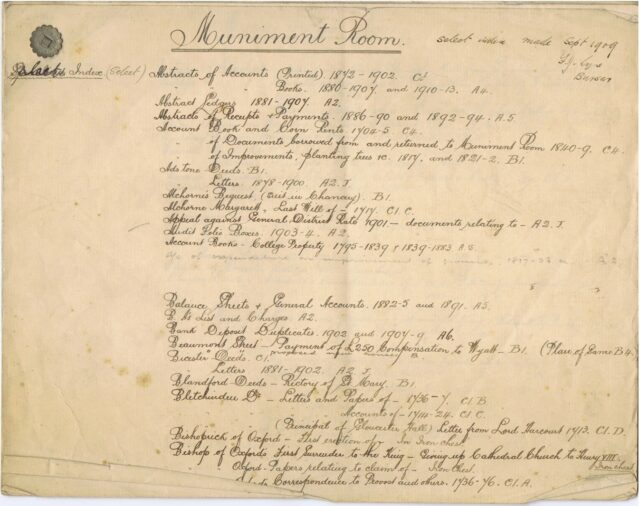 Muniment Room.
select index made Sept 1909
Bursar
Index (Select)
Abstracts of Accounts (Printed) 1872 - 1902. C1
" " Books. 1880-1907. and 1910-13. A4.
Abstract Ledgers 1881-1907. A2.
Abstracts of Receipts & Payments. 1886-90 and 1892-94. A.5
Account Book and Corn Rents 1704-5. C4.
" of Documents borrowed from and returned to Muniment Room 1840-9. C4.
" of Improvements, planting trees &c. 1817. and 1821-2. B1.
Adstone Deeds. B1.
Letters. 1878-1900. A2. J.
Alchorne's Bequest (Suit in Chancery). B1.
Alchorne Margarett, Last Will of - 1717. C1. C.
Appeal against General District Rate 1901 - documents relating to - A2. J.
Audit Folio Boxes. 1903-4. A2.
Account Books - College Property 1795-1839 & 1839-1883 A.5.
Balance Sheets & General Accounts. 1882-5 and 1891. A5.
B. List and Charges. A2.
Bank Deposit Duplicates. 1902 and 1907-9 A6.
Beaumont Street - Payment of £250 Compensation to Wyatt - B1. (Plan of Same B4.
Bicester "Deeds". C1.
Letters 1881-1902. A2. J.
Blandford Deeds - Rectory of St Mary. B1
Bletchinden Dr - Letters and Papers of - 1736-7. C1. B
" Accounts of - 1714-24. C1. C.
(Principal of Gloucester Hall) Letter from Lord Harcourt 1713. C1. D.
Bishoprick of Oxford - First erection of - In Iron chest
Bishop of Oxfords First Surrender to the King - Giving up Cathedral Church to Henry VIII. Iron chest
" Oxford. Papers relating to claim of - Iron Chest.
Correspondence to Provost and others. 1736-76. C1. A.